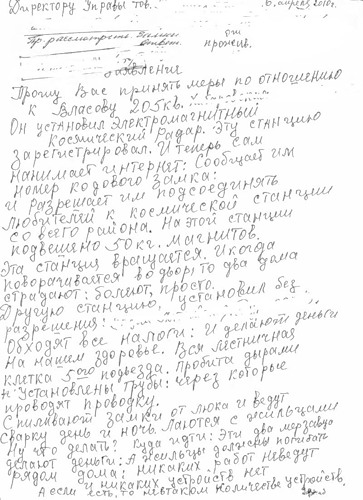 Директору Управы тов.
6. апреля 2010г.
от
прожив.
заявление
Прошу Вас принять меры по отношению
к Власову 205кв.
Он установил электромагнитный
космический радар. Эту станцию
зарегистрировал. И теперь сам
нанимает интернет: Сообщает им
номер кодового замка:
и разрешает им подсоединять
Любителей к космической станции
со всего района. На этой станции
подвешено 50кг. магнитов.
Эта станция вращается. И когда
поворачивается во двор, то два дома
страдают: болеют, просто.
Другую станцию, установил без
разрешения:
Обходят все налоги: И делают деньги
На нашем здоровье. Вся лестничная
клетка 5ого подъезда. Пробита дырами
и установлены трубы: через которые
проводят проводку.
Спиливают замки от люка и ведут
сварку день и ночь. Лаются с жильцами
Ну что делать? Куда идти: Эти два мерзавца
делают деньги: А жильцы должны погибать
рядом дома: никаких работ неведут
и никаких устройств нет
А если есть, то невтаком количестве устройств.